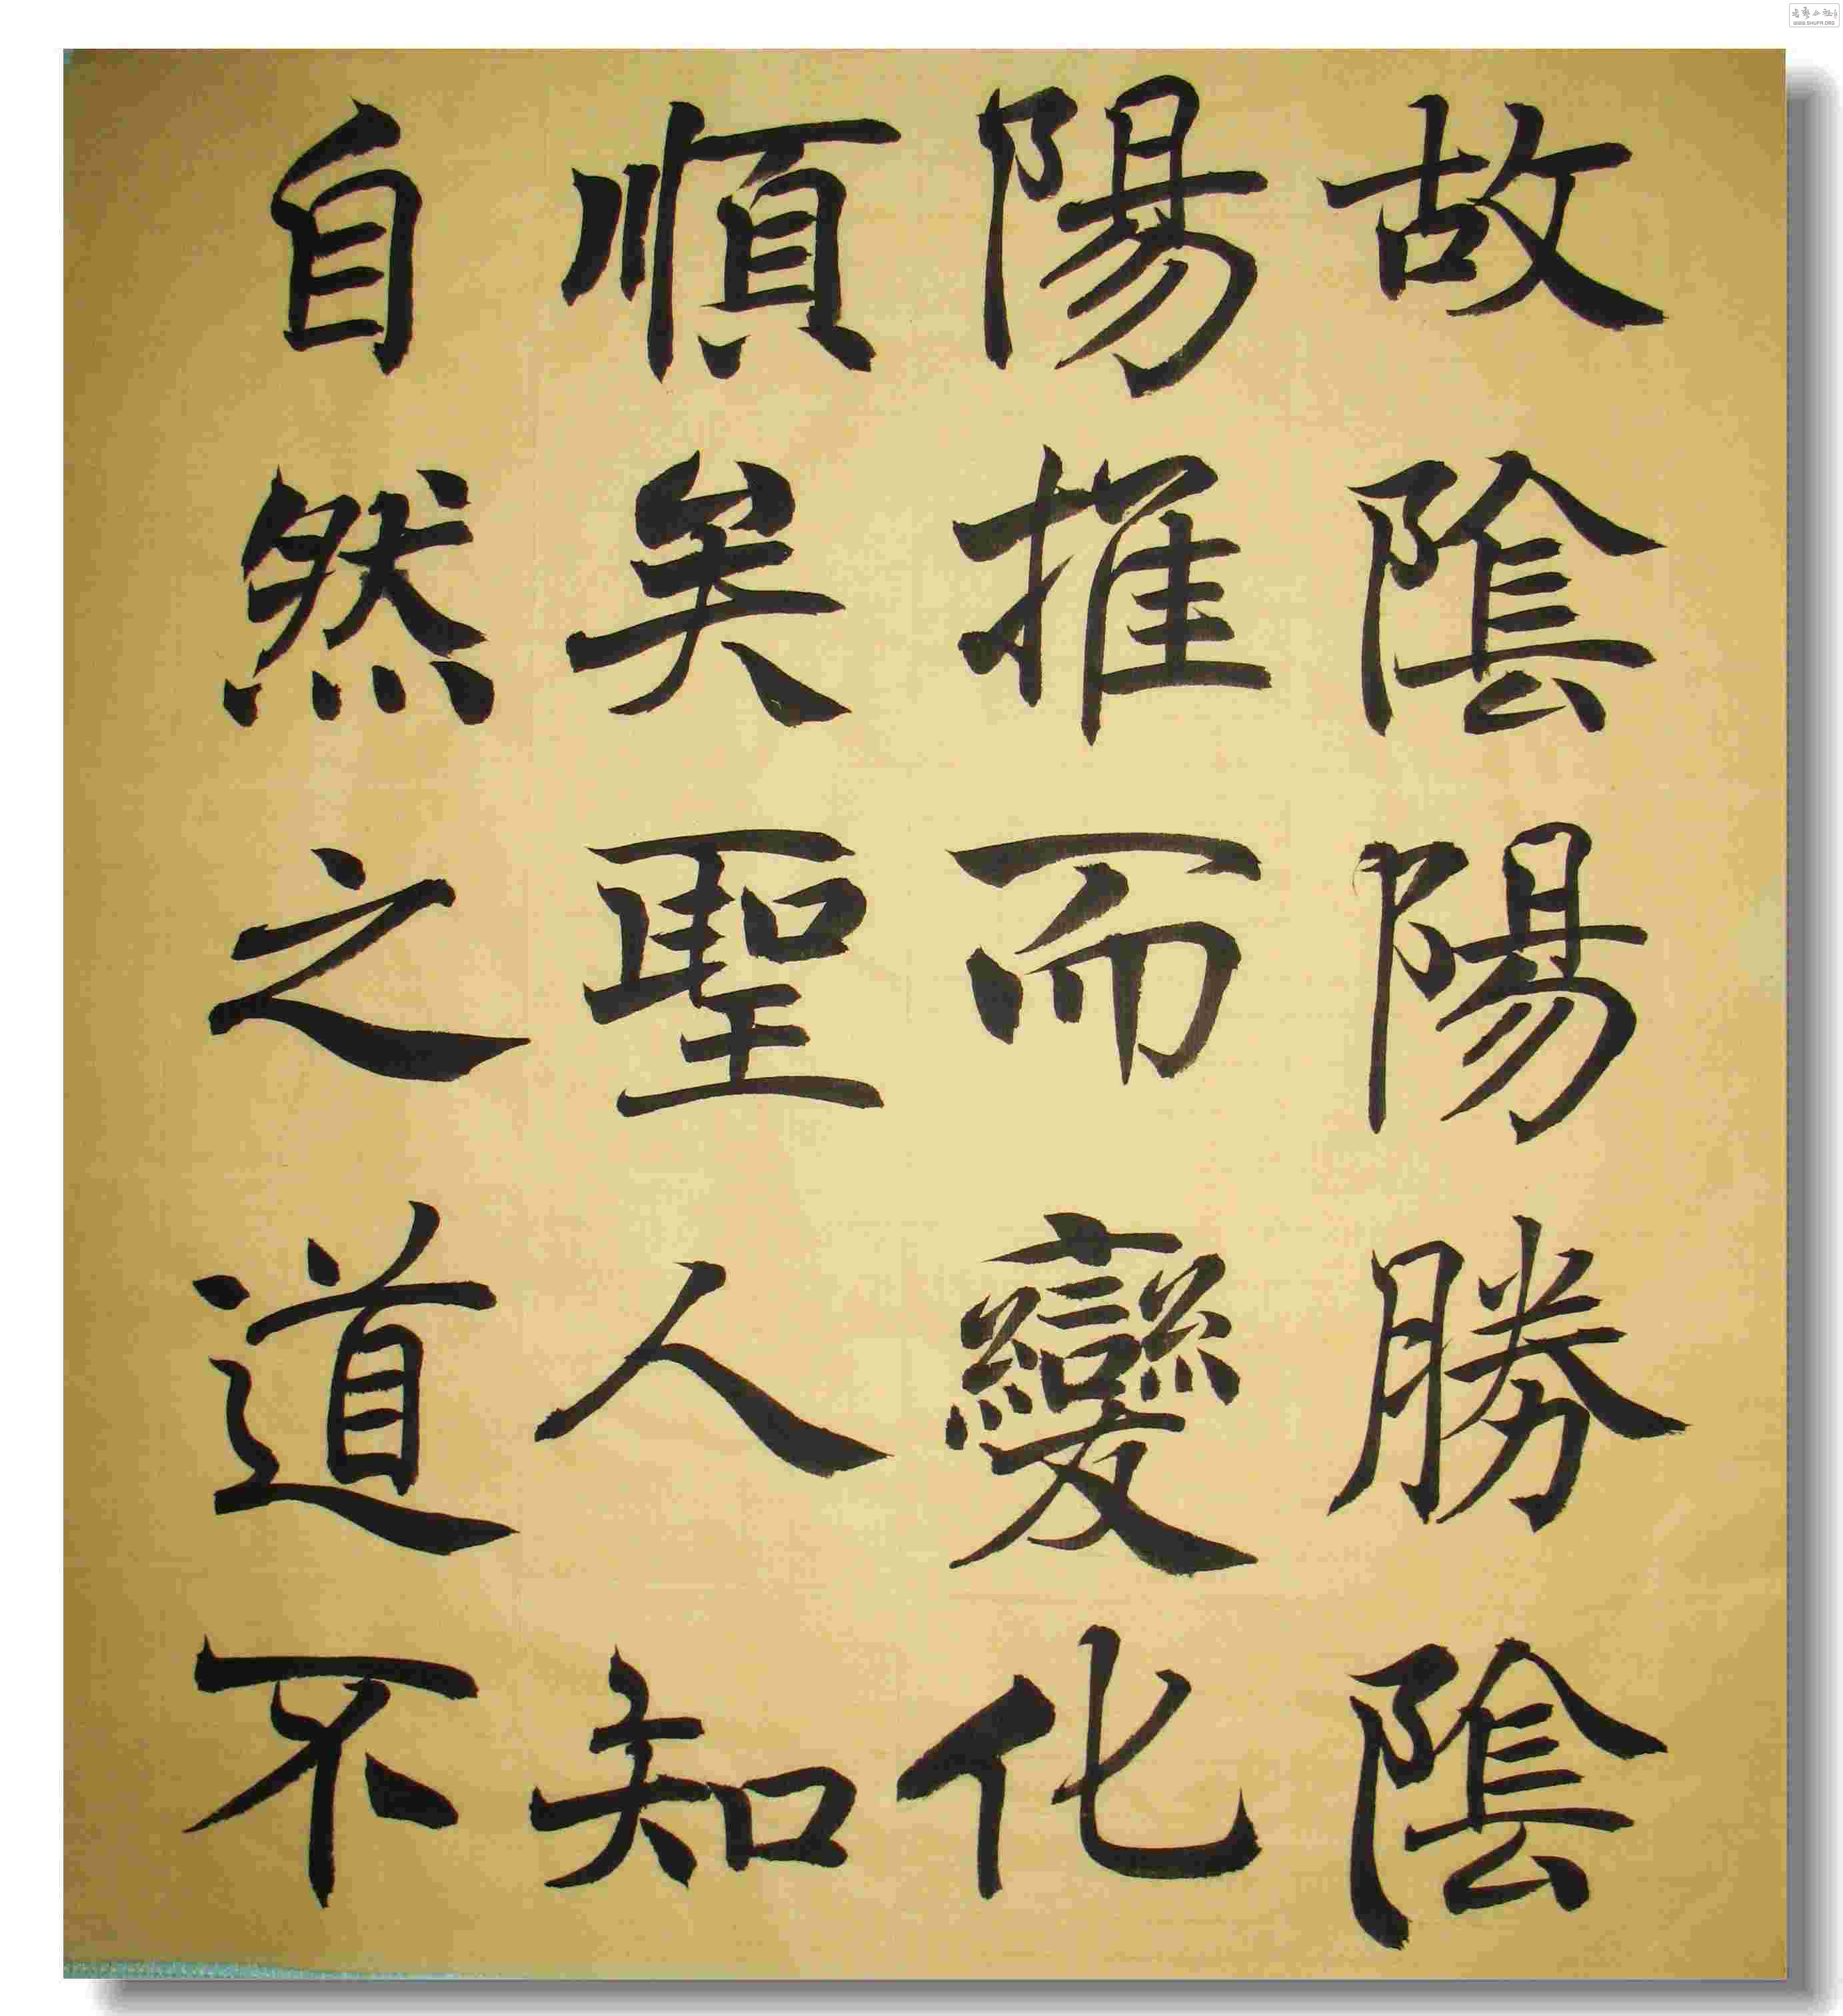 故陰陽勝陰
陽推而變化
順矣聖人知
自然之道不
WWW.SHUFA.ORG